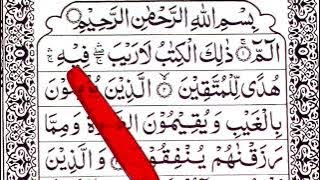 بِسْمِ اللّٰهِ الرَّحْمٰنِ الرَّحِيْمِ
الٓمّٓ ۚ ذٰلِكَ الْكِتٰبُ لَا رَيْبَ ۛۖ فِيْهِ ۛۚ
هُدًى لِّلْمُتَّقِيْنَ ۙ الَّذِيْنَ
بِالْغَيْبِ وَيُقِيْمُوْنَ وَمِمَّا
رَزَقْنٰهُمْ يُنْفِقُوْنَ ۙ وَالَّذِيْنَ